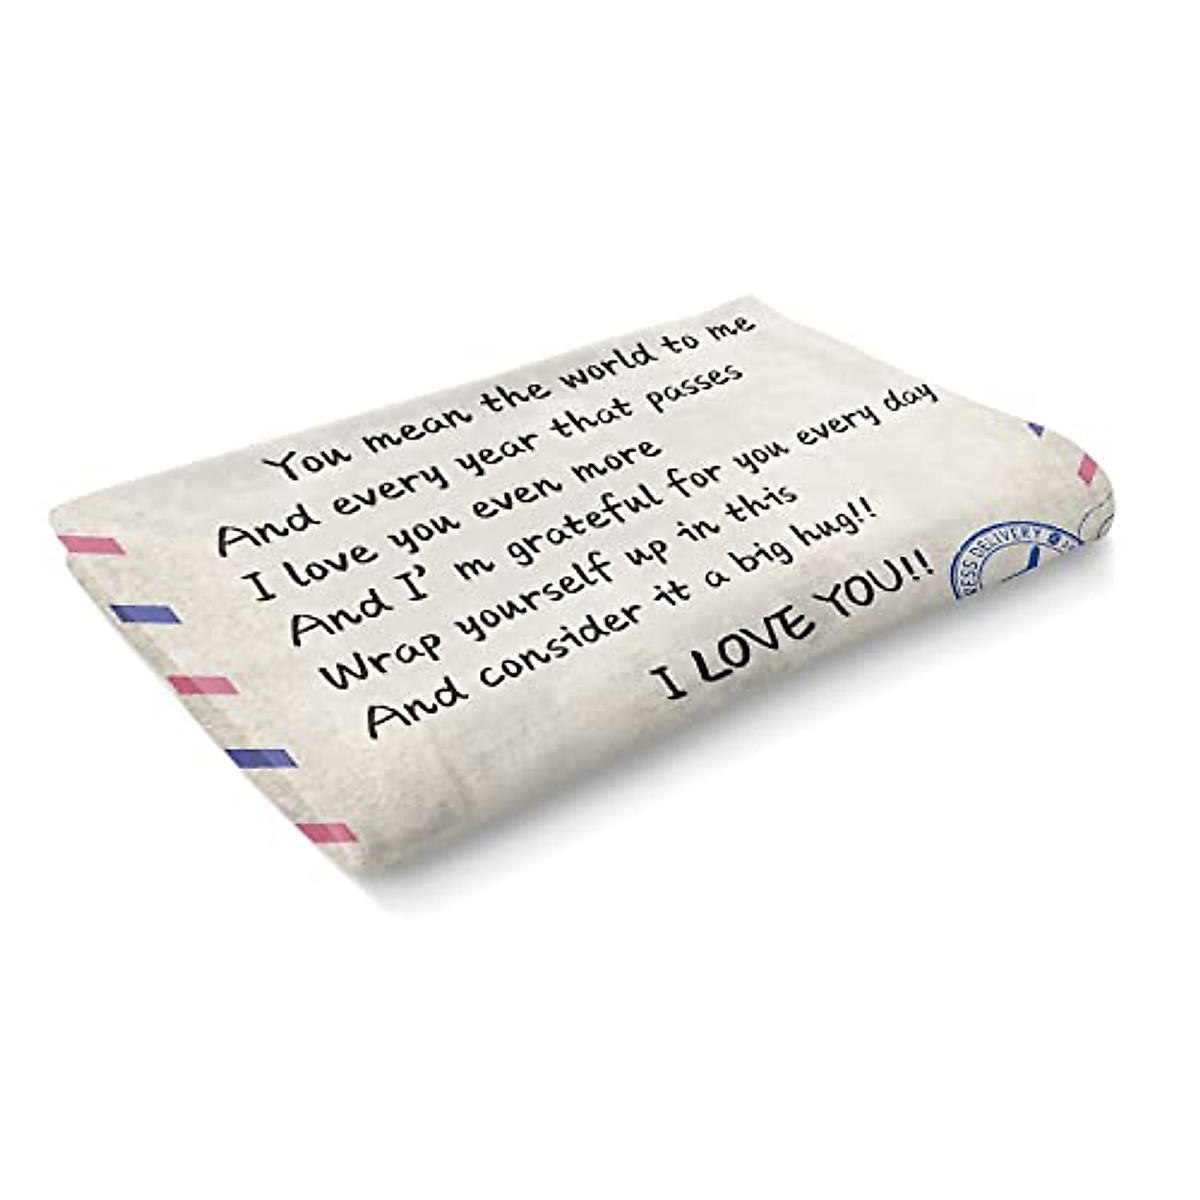 You mean the world to me
And every year that passes
I love you even more
And I' m grateful for you every day
Wrap yourself up in this
And consider it a big hug!!
I LOVE YOU!!
RESS DELIVERY